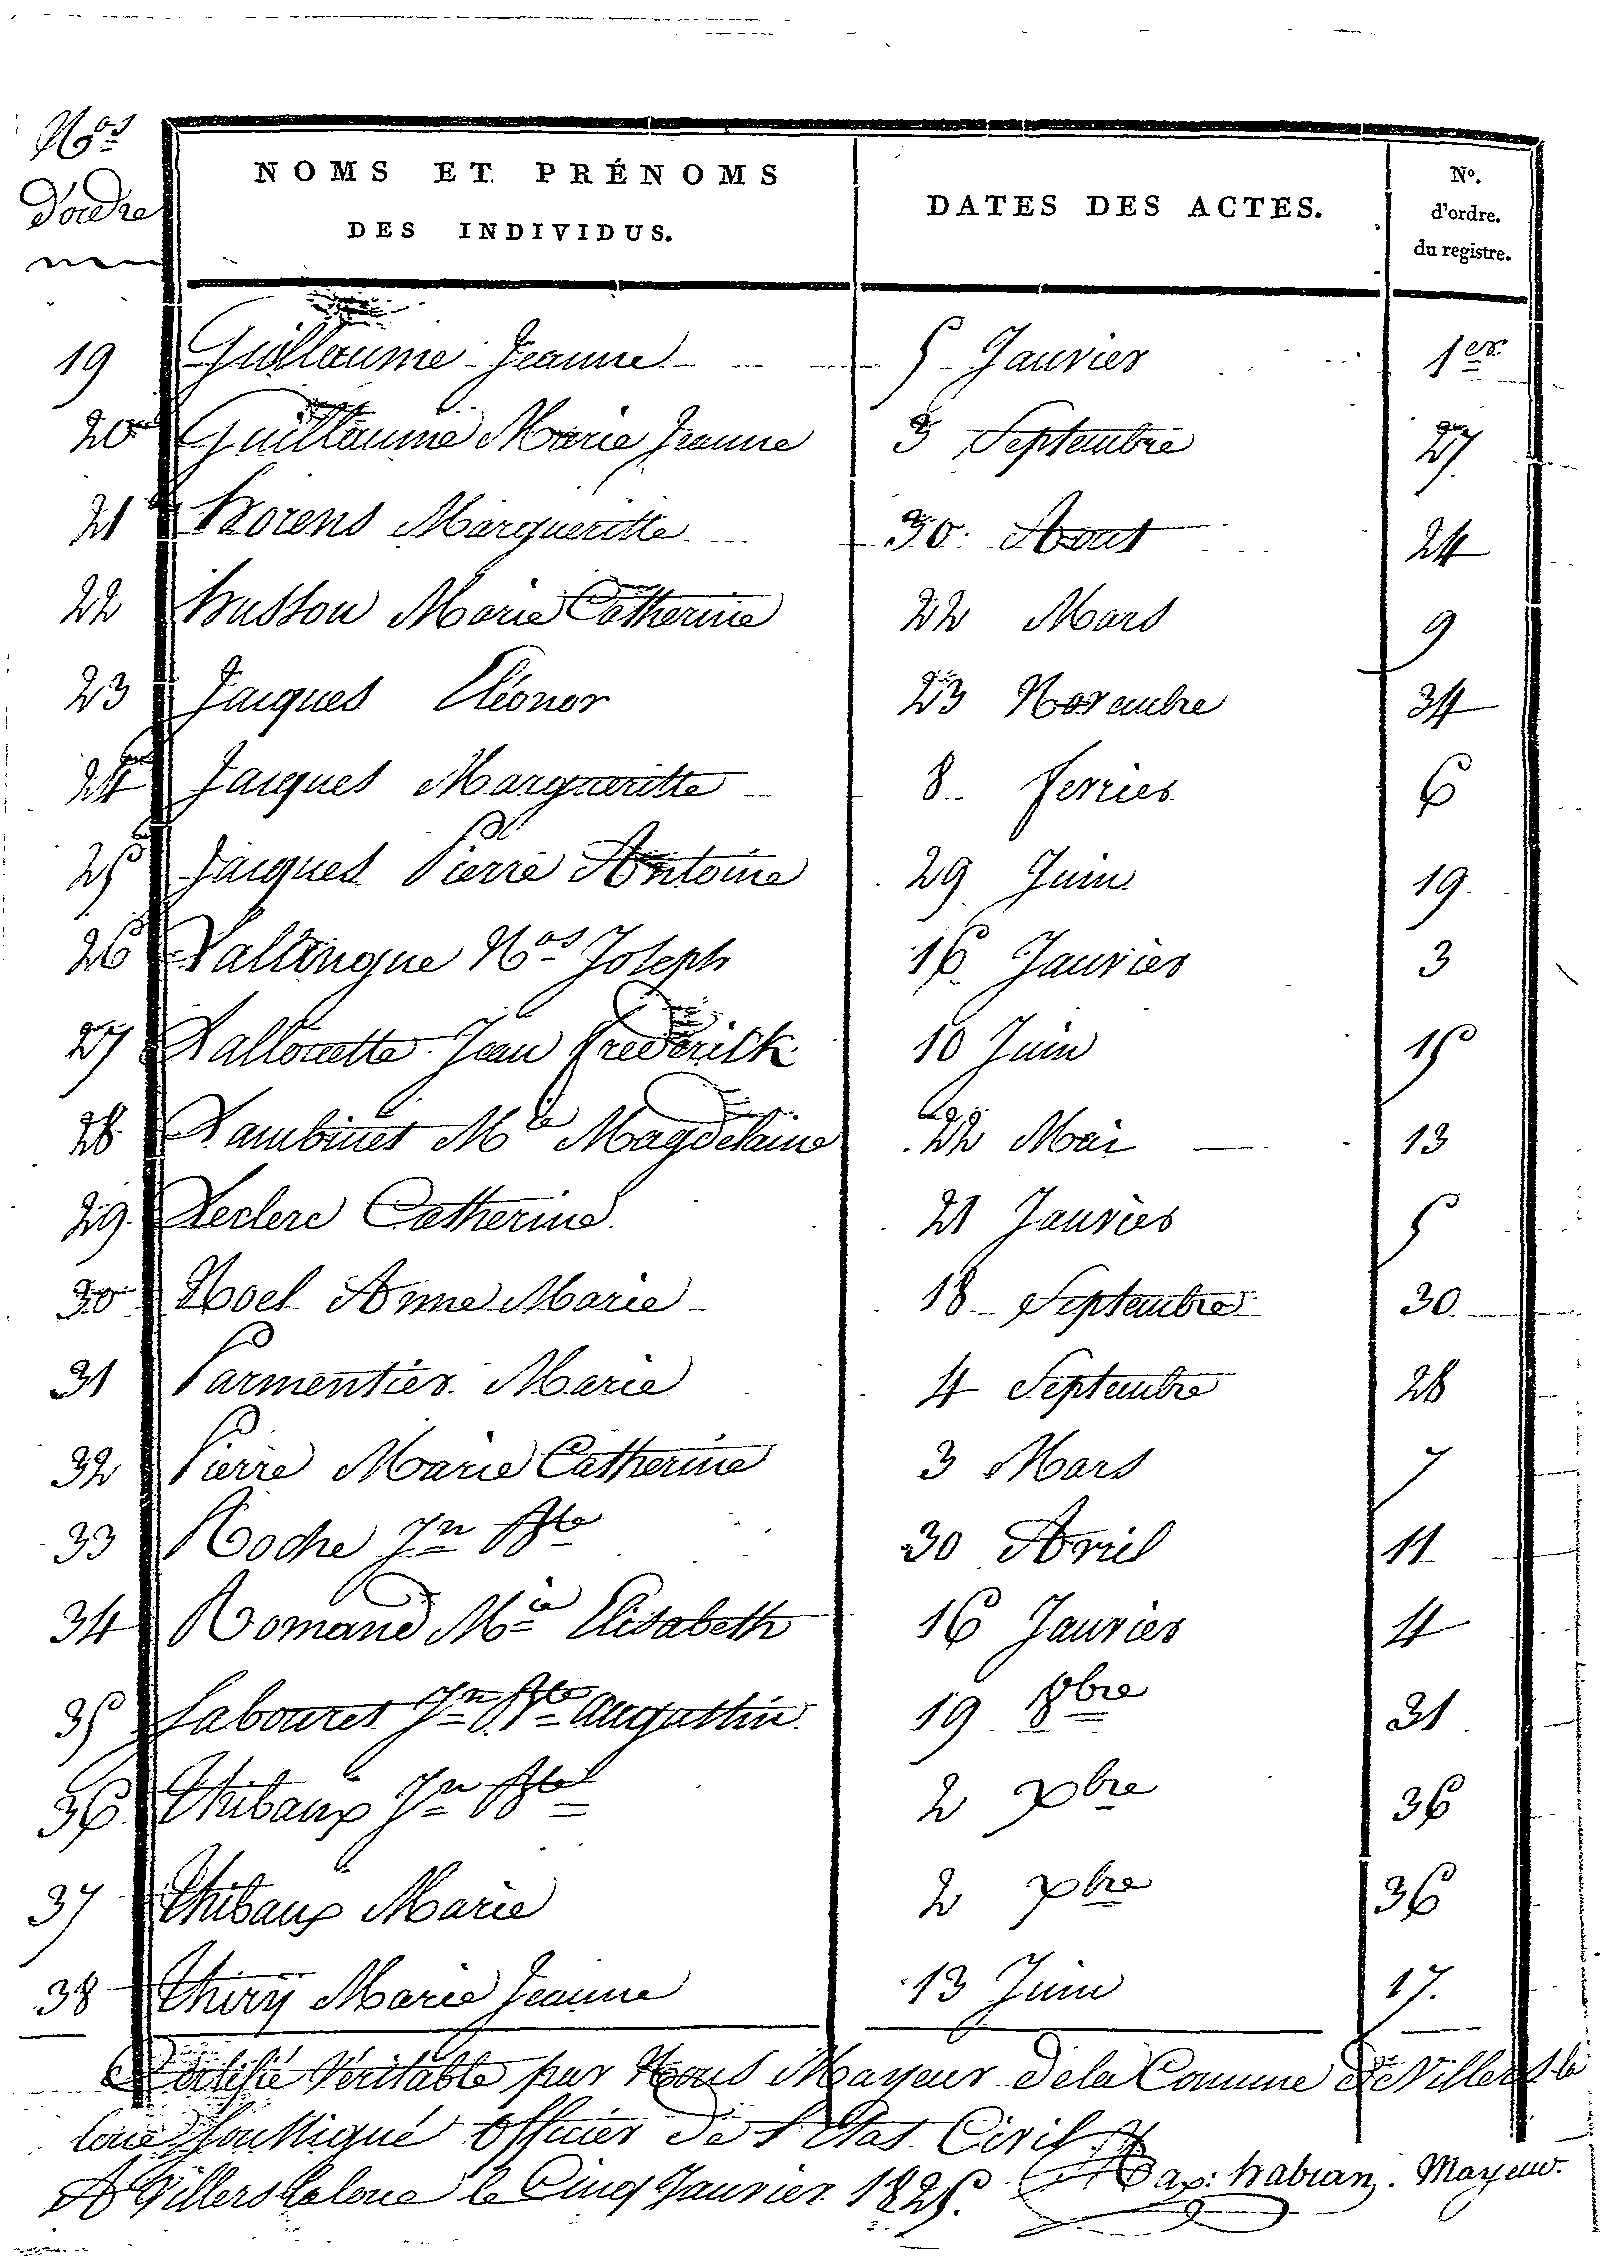 Nos
d'ordre
NOMS ET PRÉNOMS
DES INDIVIDUS.
DATES DES ACTES.
No.
d'ordre.
du registre.
19 Guillaume Jeanne 5 Janvier 1er
20 Guillaume Marie Jeanne 3 Septembre 27
21 horens Margueritte 30 Aout 24
22 husson Marie Catherine 22 Mars 9
23 Jacques Eléonor 23 Novembre 34
24 Jacques Margueritte 8 fevrier 6
25 Jacques Pierre Antoine 29 Juin 19
26 Lallingue Nas Joseph 16 Janvier 3
27 Lallouette Jean Frederick 10 Juin 15
28 Lambinet Mie Magdelaine 22 Mai 13
29 Leclerc Catherine 21 Janvier 5
30 Noel Anne Marie 18 Septembre 30
31 Parmentier Marie 4 Septembre 28
32 Pierre Marie Catherine 3 Mars 7
33 Roche Jn Bte 30 Avril 11
34 Romand Mie Elisabeth 16 Janvier 4
35 Sabouret Jn Bte augustin 19 8bre 31
36 Thibaux Jn Bte 2 xbre 36
37 Thibaux Marie 2 xbre 36
38 Thiry Marie Jeanne 13 Juin 17.
Certifié Véritable par Nous Mayeur de la Commune de Villers la
loue soussigné officier de l'Etat Civil
A Villers la loue le Cinq Janvier 1825. Max: habran. Mayeur.